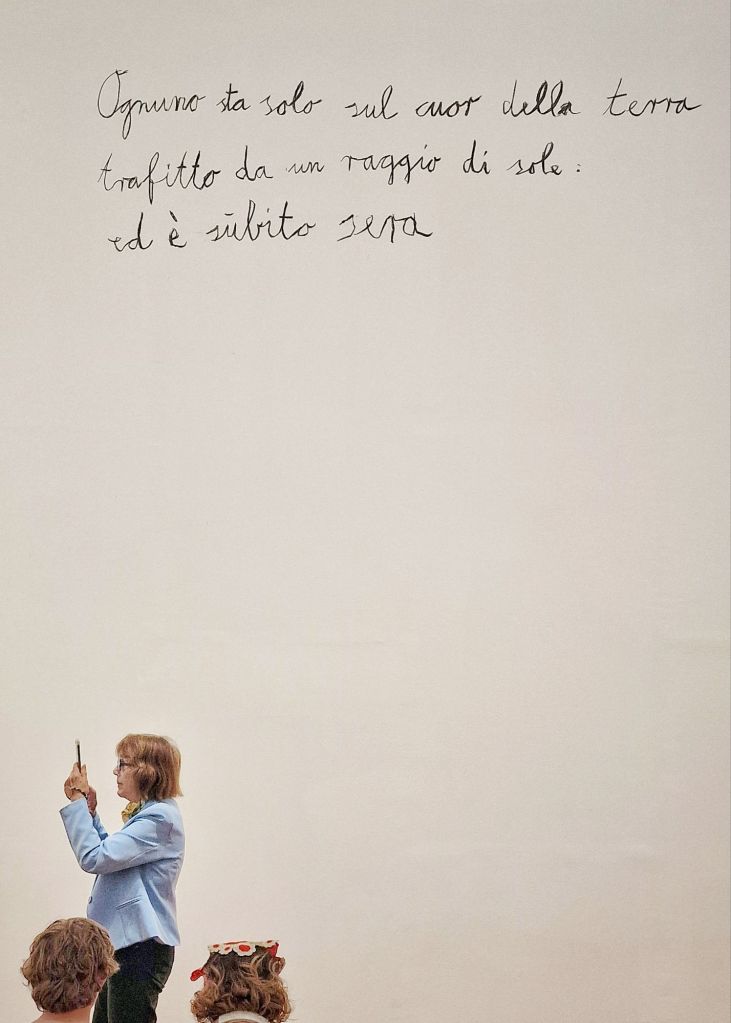 Ognuno sta solo sul cuor della terra
trafitto da un raggio di sole:
ed è sùbito sera